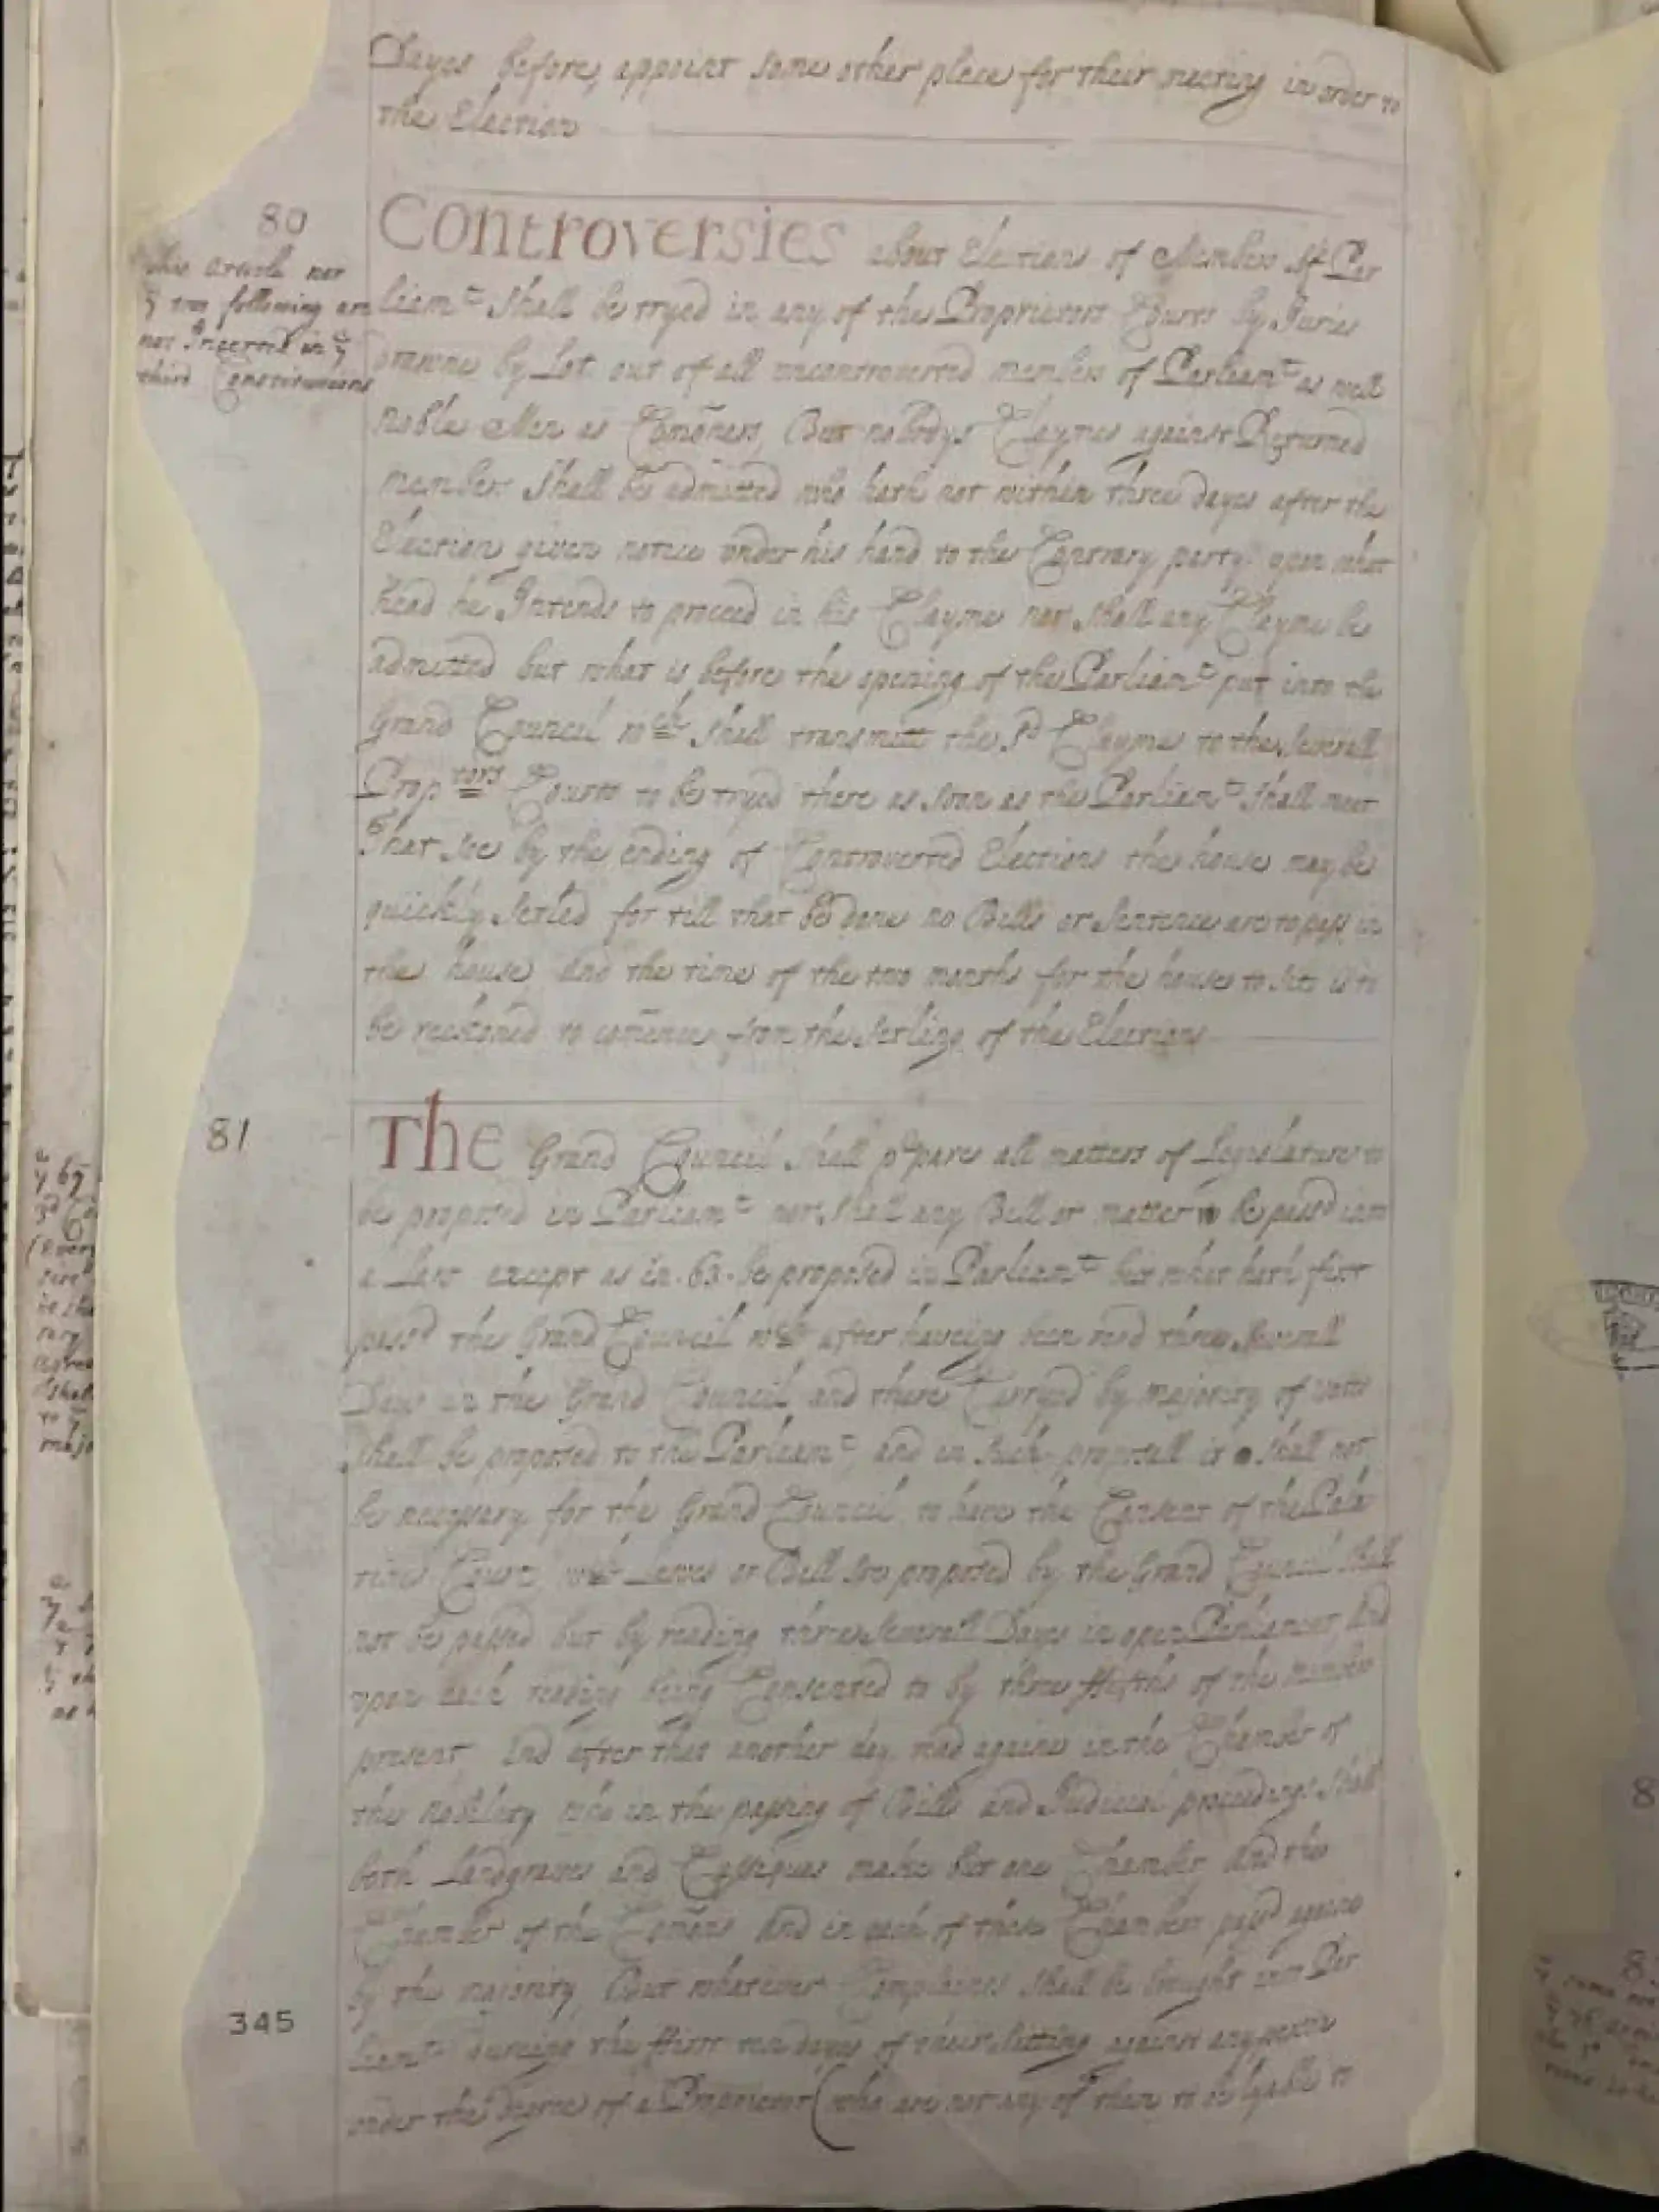 Dayes before, appoint some other place for their meeting in order to
the Election
80
This Article nor
yᵉ two following are
not Incerted in yᵉ
third Constitucions
Controversies about Elections of Members of Par
liamᵗ Shall be tryed in any of the Proprietors Courts by Juries
drawne by Lot out of all uncontroverted members of Parliamᵗ as well
noble Men as Com̄oners, But nobodys Clayme against Returned
member Shall be admitted who hath not within three dayes after the
Election given notice under his hand to the Contrary party upon what
head he Intends to proceed in his Clayme nor Shall any Clayme be
admitted but what is before the opening of the Parliamᵗ put into the
Grand Council wᶜʰ Shall transmitt the sᵈ Clayme to the Severall
Propᵗᵒʳˢ Courts to be tryed there as soon as the Parliamᵗ Shall meet
That soe by the ending of Controverted Elections the house may be
quickly Setled for till that be done no Bills or Sentence are to pass in
the house And the time of the two months for the house to sitt is to
be reckoned to com̄ence from the Setling of the Elections
81
The Grand Council Shall pʳpare all matters of Legislature to
be proposed in Parliamᵗ nor Shall any Bill or matter to be passᵈ into
a Law except as in .63. be proposed in Parliamᵗ but what hath first
passᵈ the Grand Council wᶜʰ after haveing been read three Severall
Days in the Grand Council and there Carryed by majority of votes
Shall be proposed to the Parliamᵗ, and in such proposall it Shall not
be necessary for the Grand Council to have the Consent of the Pala
tines Court, wᶜʰ Lawes or Bill soe proposed by the Grand Council Shall
not be passed but by reading three Severall Dayes in open Parliament And
upon each reading being Consented to by three ffifths of the members
present And after that another day read againe in the Chamber of
the nobility who in the passing of Bills and Judicial proceedings Shall
both Landgraves and Cassiques make but one Chamber And the
Chamber of the Com̄ons And in each of those Chambers passᵈ againe
by the majority, But whatever Complaints Shall be brought into Par
liamᵗ dureing the ffirst ten dayes of their Sitting against any
under the degree of a Proprietor (who are not any of them to be lyable to
345